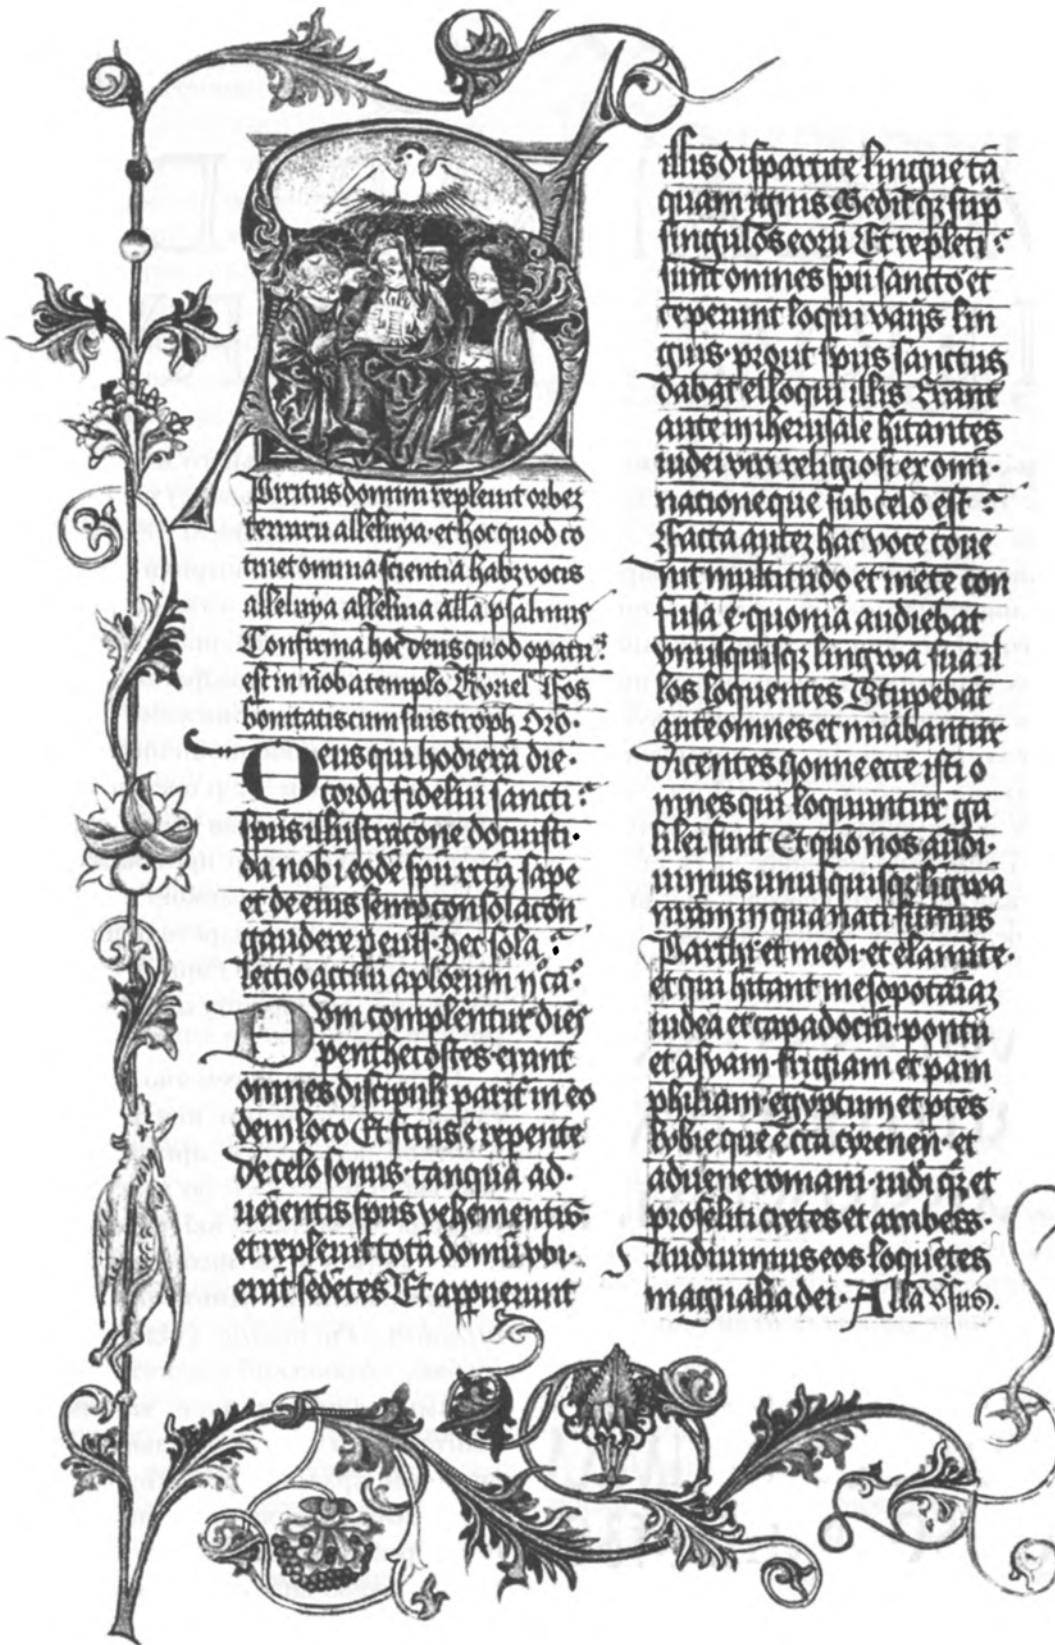 Spiritus domini repleuit orbez
terraru alleluya · et hoc quod co
tinet omnia scientia habz vocis
alleluya alleluia all'a psalmus
Confirma hoc deus quod opatu
est in nob a templo Kyriel' Cos
bonitatis cum suis troph Oro ·
Deus qui hodierna die ·
corda fideliu sancti
spus illustracoe docuisti ·
da nob i eode spu recta sape
et de eius semp consolacon
gaudere p eude · hec sola
lectio actuu aplorum
Dom complentur dies
penthecostes · erant
omnes discipuli parit in eo
dem loco Et fcus e repente
de celo sonus · tanqua ad ·
uenientis spus vehementis
et repleuit tota domu vbi ·
erat sedetes Et apparuerunt
illis dispartite lingue ta
quam ignis Seditqz sup
singulos eoru Et repleti
sunt omnes spu sancto et
ceperunt loqui varijs lin
guis · prout spus sanctus
dabat eloqui illis Erant
aute in iherusale hitantes
iudei viri religiosi ex omi
natione que sub celo est
Facta autez hac voce coue
nit multitudo et mete con
fusa e · quonia audiebat
vnusquisqz lingwa sua il
los loquentes Stupebat
aute omnes et mirabantur
dicentes Nonne ecce isti o
mnes qui loquuntur ga
lilei sunt Et quo nos audi ·
uimus unusquisqz ligwa
nram in qua nati sumus
Parthi et medi · et elamite ·
et qui hitant mesopotamiaz
iudea et capadocia · pontu
et asyam · frigiam et pam
philiam · egyptum et ptes
lybie que e circa cirenen · et
aduene romani · iudi qz et
proseliti cretes et arabes ·
Audiuimus eos loquetes
magnalia dei · Alla Vsus